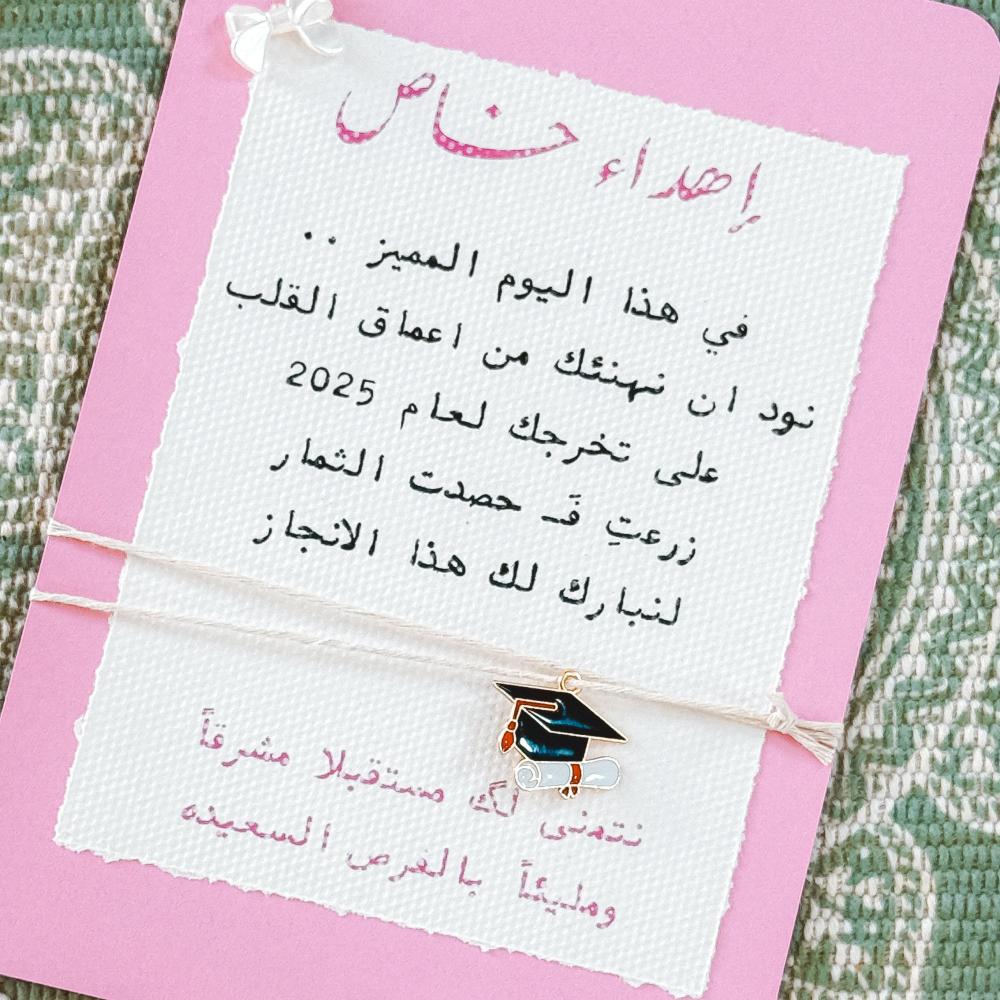 إهداء خاص
في هذا اليوم المميز ..
نود ان نهنئك من اعماق القلب
على تخرجك لعام 2025
زرعتِ فَـ حصدت الثمار
لنبارك لك هذا الانجاز
نتمنى لك مستقبلا مشرقاً
ومليئاً بالفرص السعيده